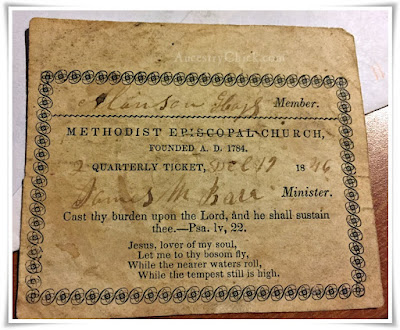 AncestryChick.com
Alanson Member.
METHODIST EPISCOPAL CHURCH,
FOUNDED A. D. 1784.
2 QUARTERLY TICKET, Dec 19 1846
James M Minister.
Cast thy burden upon the Lord, and he shall sustain
thee.—Psa. lv, 22.
Jesus, lover of my soul,
Let me to thy bosom fly,
While the nearer waters roll,
While the tempest still is high.